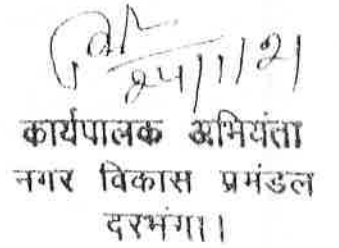 24/1/21
कार्यपालक अभियंता
नगर विकास प्रमंडल
दरभंगा।